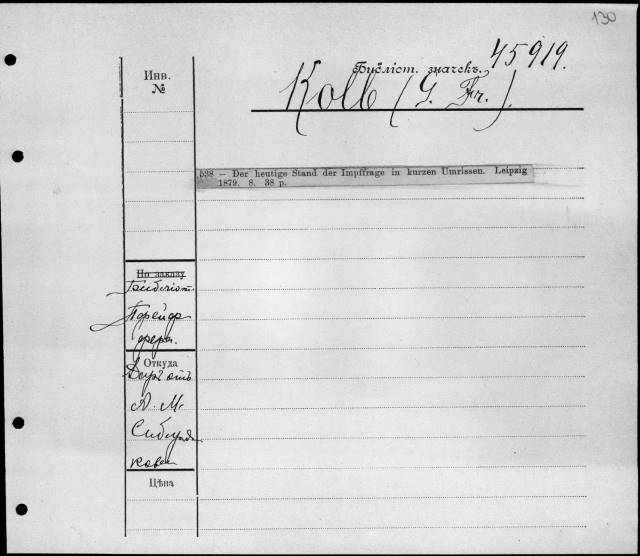 130
Инв.
№
Библіот. значекъ.
45919.
Kolb (G. Fr.).
538 — Der heutige Stand der Impffrage in kurzen Umrissen. Leipzig
1879. 8. 38 p.
По заказу
Библіот.
Пфейф
фера.
Откуда
Даръ отъ
А. М.
Сибиря
кова
Цѣна